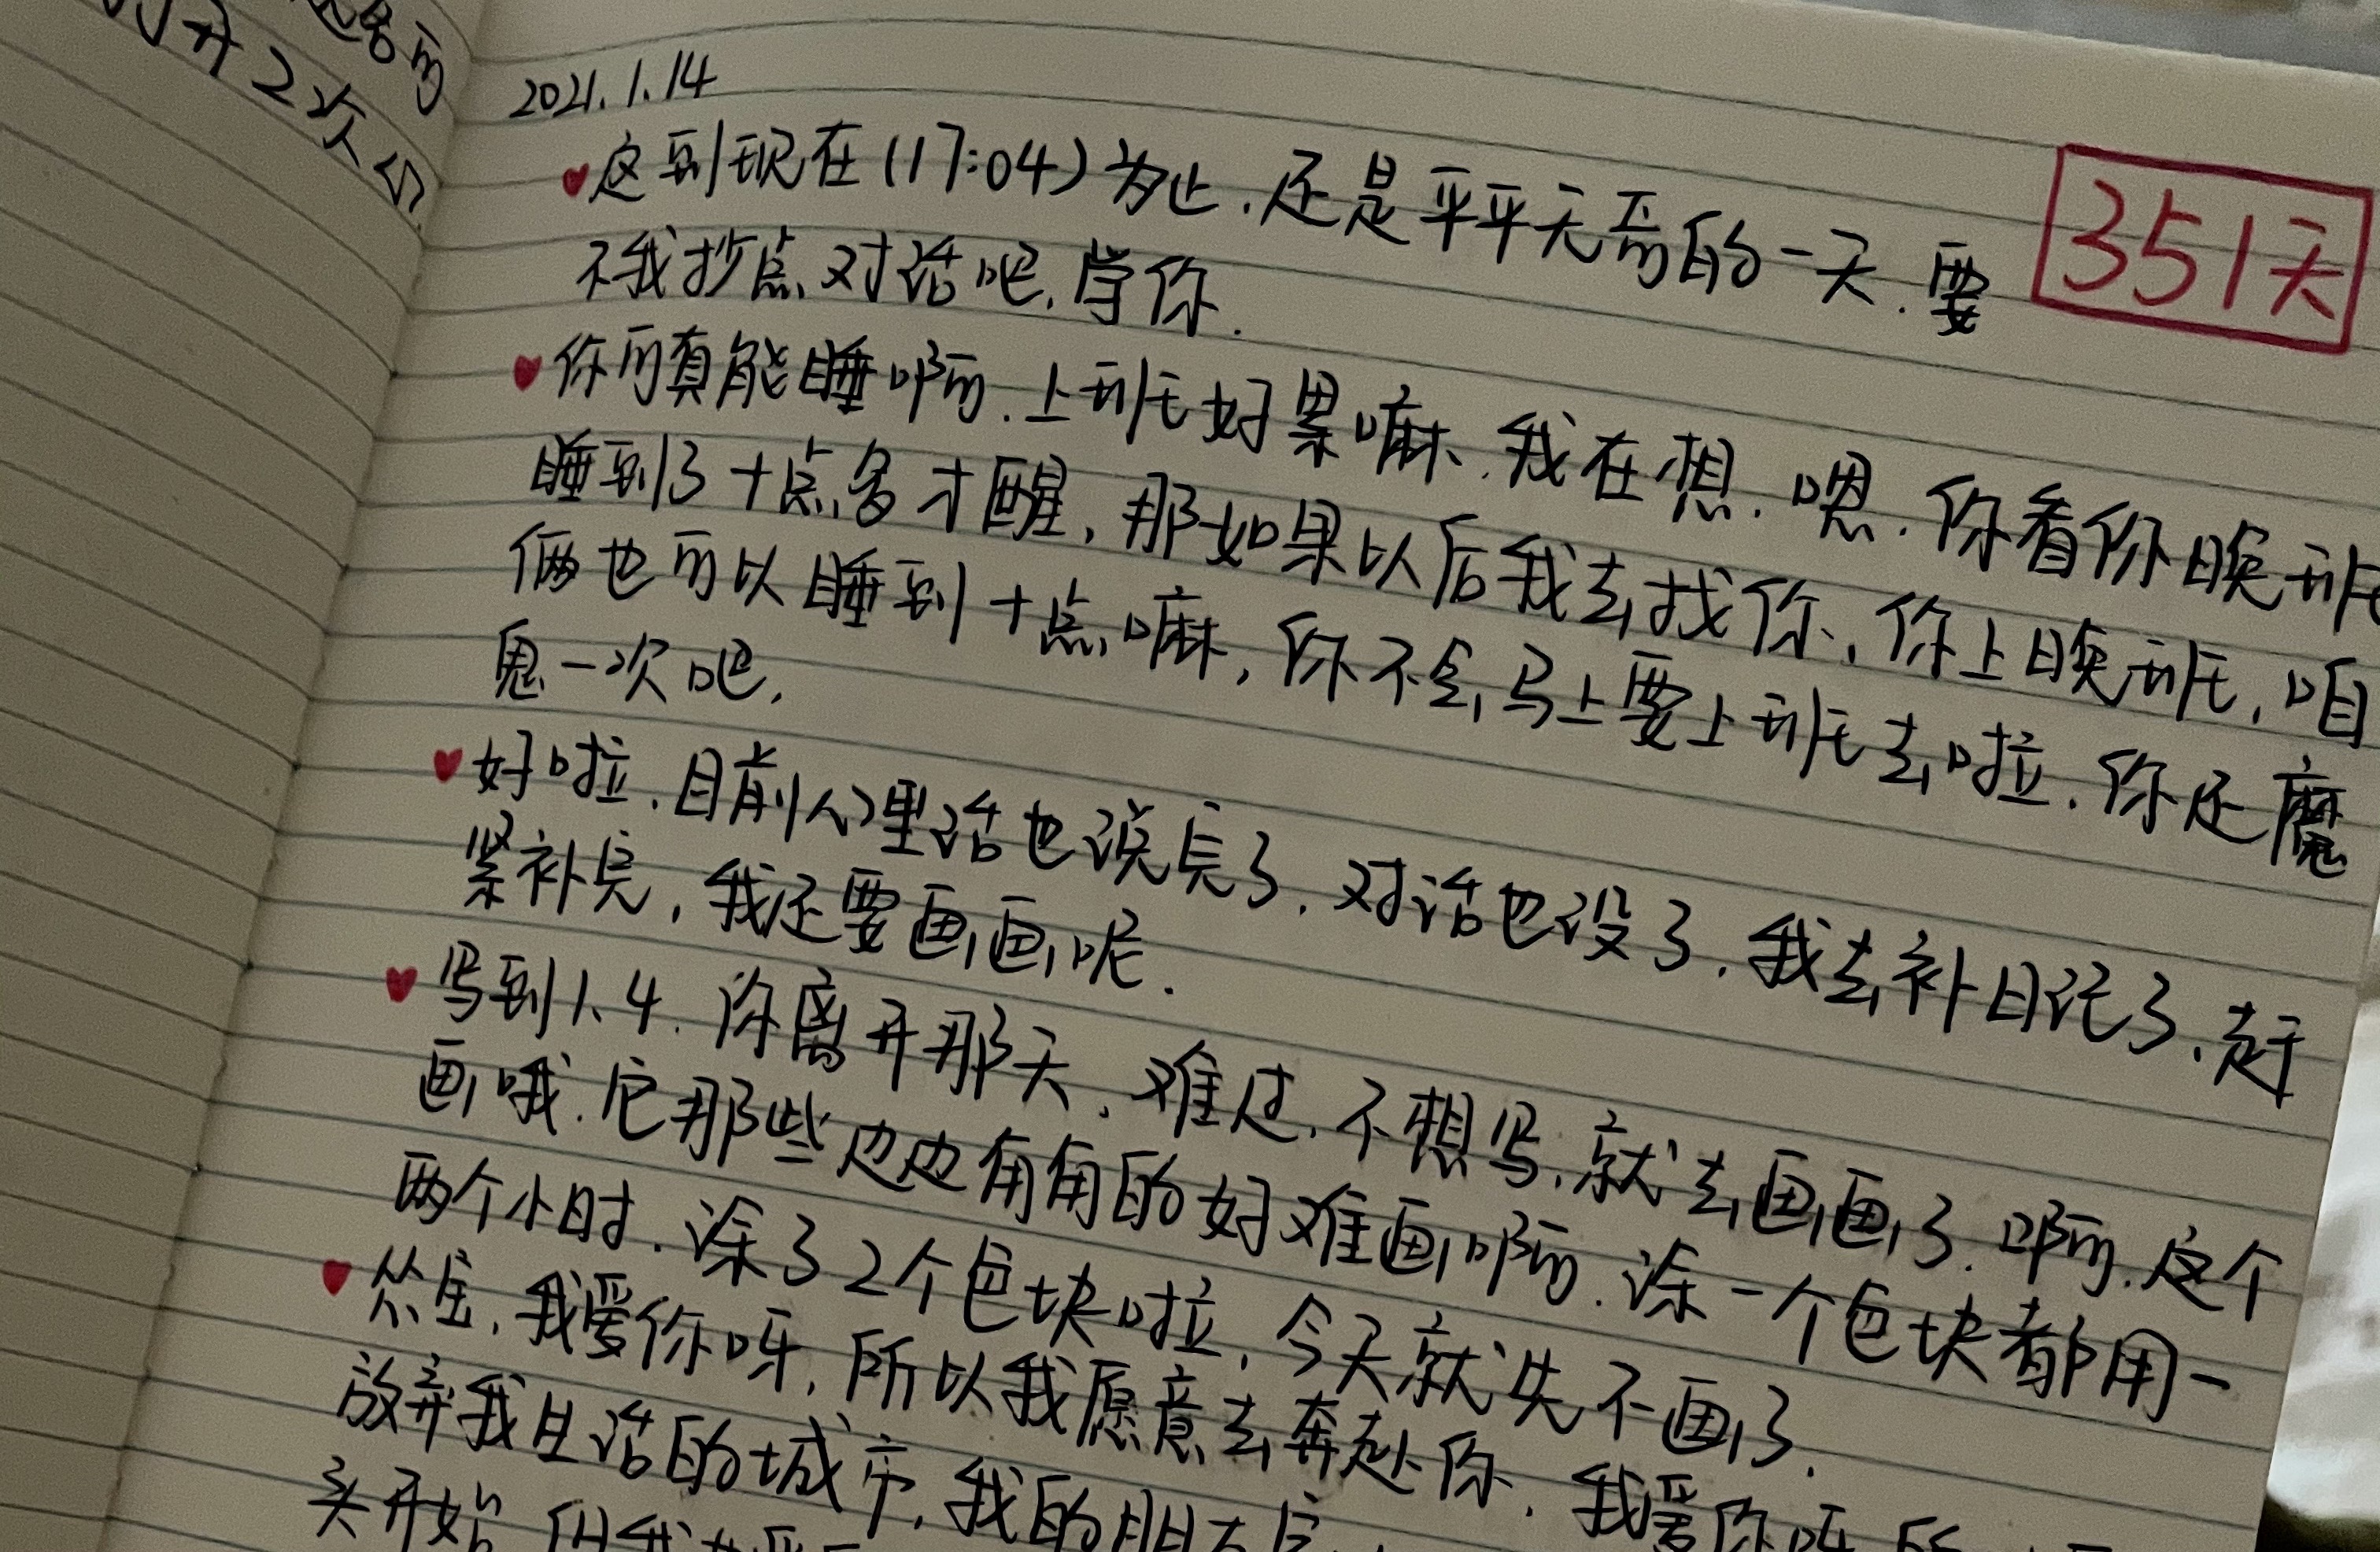 开2次
2021.1.14
351天
这到现在(17:04)为止.还是平平无奇的一天.要
不我抄点对话吧,学你.
你可真能睡啊.上班好累嘛.我在想.嗯.你看你晚班
睡到了十点多才醒,那如果以后我去找你,你上晚班,咱
俩也可以睡到十点嘛,你不会马上要上班去啦.你还魔
鬼一次吧,
好啦.目前心里话也说完了.对话也没了.我去补日记了.赶
紧补完,我还要画画呢.
写到1.4.你离开那天.难过.不想写.就去画画了.啊.这个
画哦.它那些边边角角的好难画啊.涂一个色块都用一
两个小时.涂了2个色块啦,今天就先不画了.
我爱你呀,所以我愿意去奔赴你.我爱你呀
放弃我生活的城市.我的朋友
头开始